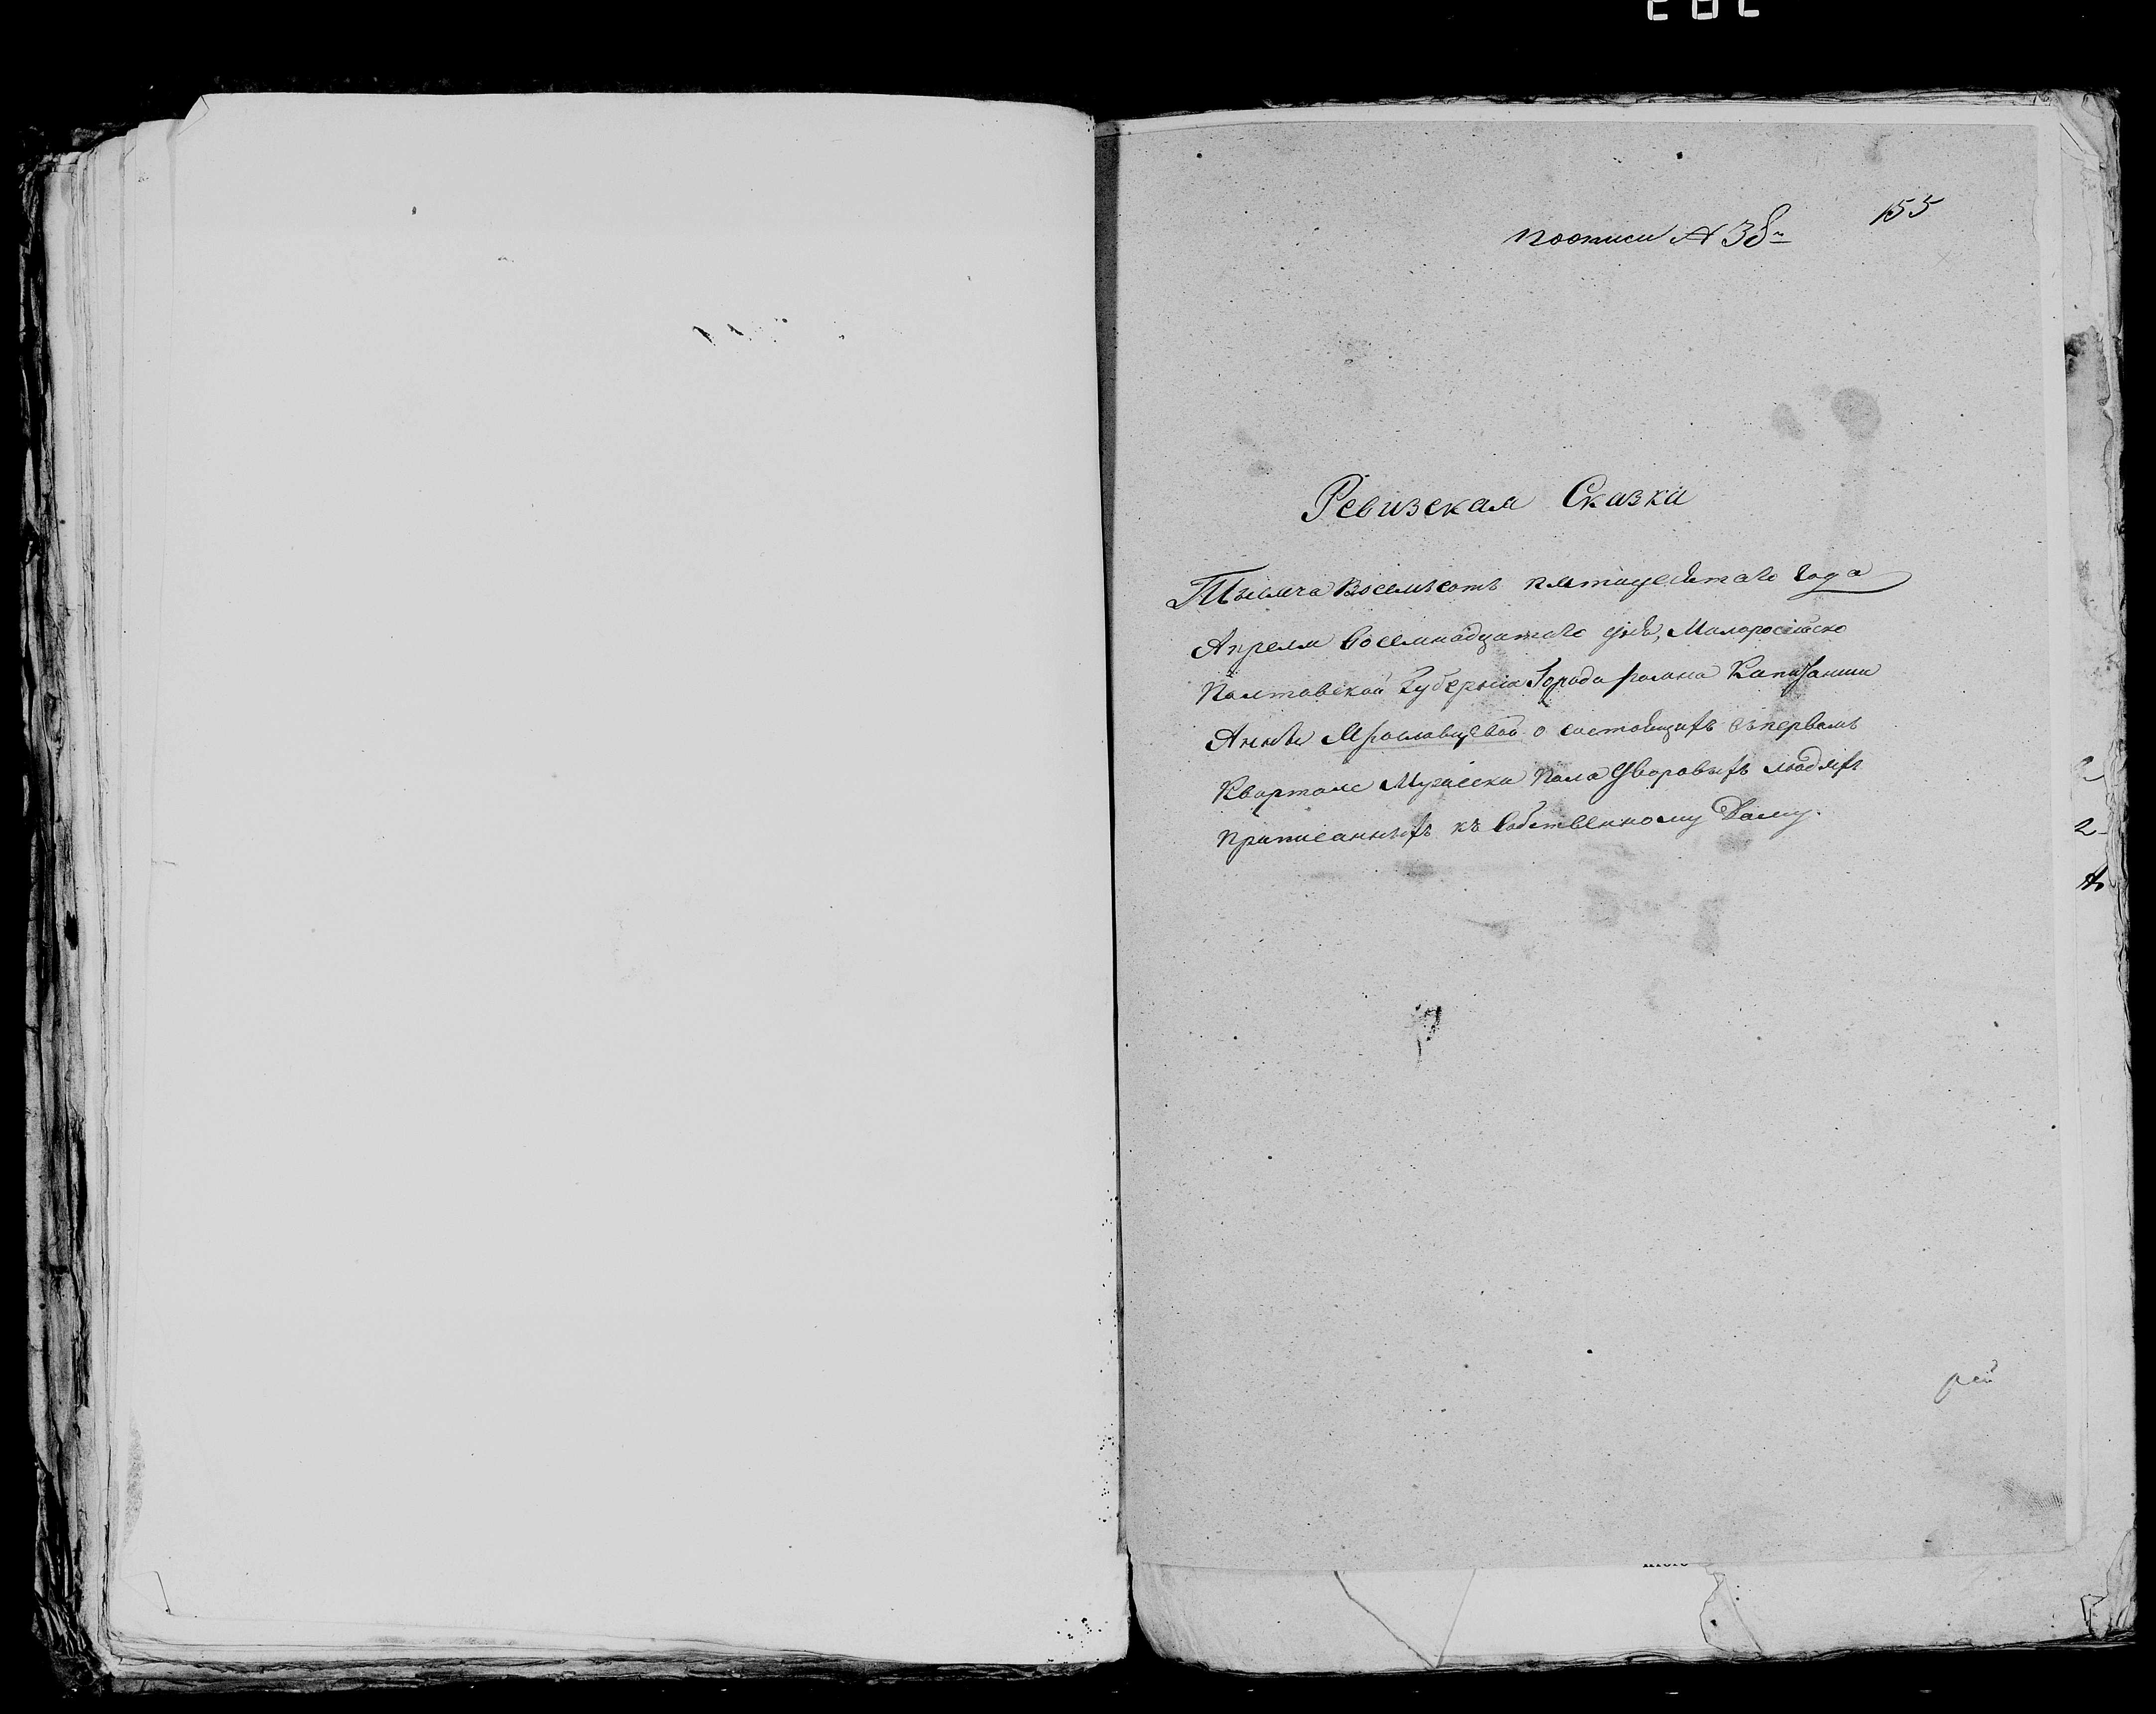 по описи № 38й
155
Ревизская Сказка
Тысяча Восемьсотъ пятидесятаго года
Апреля восемнадцатаго дня, Малоросійско
Полтавской Губерніи Города Ромна Капитанши
Анны Ярославцевой о состоящихъ въ первомъ
Квартале Мужеска пола дворовыхъ людяхъ
приписанныхъ къ собственному Дому.